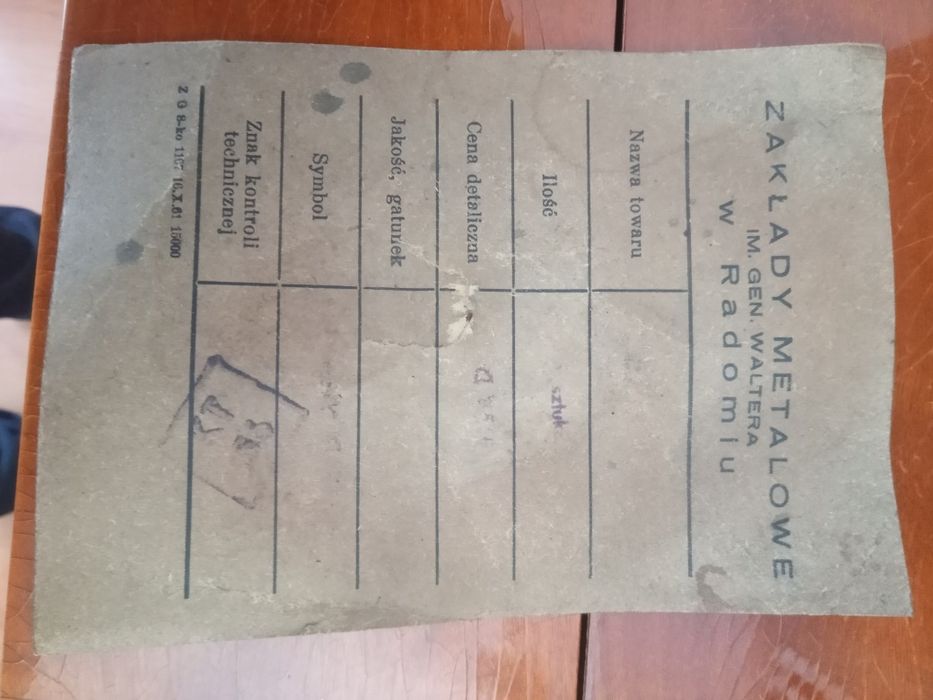 ZAKŁADY METALOWE
IM. GEN. WALTERA
w Radomiu
Nazwa towaru
Ilość sztuk
Cena detaliczna
Jakość, gatunek
Symbol
Znak kontroli
technicznej
Z O 8-ko 1167 16.X.61 15000